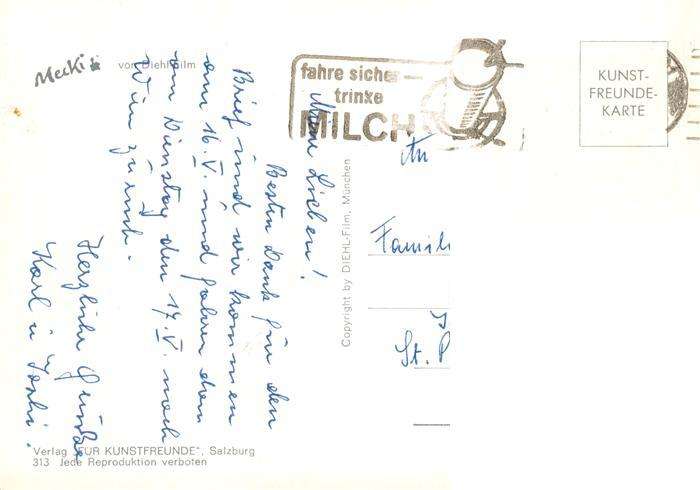 Mecki
von Diehl-Film
fahre sicher
trinke
MILCH
KUNST-
FREUNDE-
KARTE
Meine Lieben!
Besten Dank für den
Brief und wir kommen
am 16. V. und fahren dann
am Dienstag den 17. V. nach
Wien zurück.
Herzliche Grüße
Karl u.
An
Famili
St. P
Copyright by DIEHL-Film, München
Verlag "FÜR KUNSTFREUNDE", Salzburg
313 Jede Reproduktion verboten